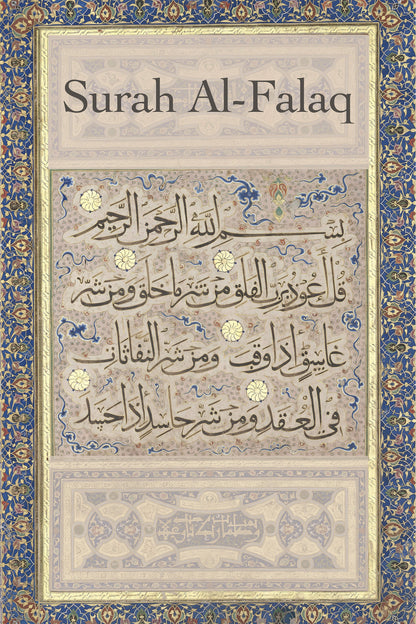 Surah Al-Falaq
بسم الله الرحمن الرحيم
قل أعوذ برب الفلق من شر ما خلق ومن شر
غاسق اذا وقب ومن شر النفاثات
في العقد ومن شر حاسد اذا حسد